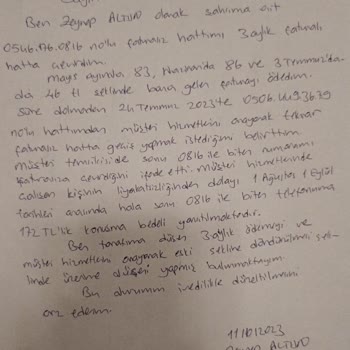 Ben Zeynep ALTUN olarak şahsıma ait
0546 716 0816 no'lu faturasız hattımı 3 aylık faturalı
hatta çevirdim.
Mayıs ayında, 83, Haziran'da 86 ve 3 Temmuz'da
da 46 tl şeklinde bana gelen faturayı ödedim.
Süre dolmadan 24 Temmuz 2023'te 0506 3639
no'lu hattımdan müşteri hizmetlerini arayarak tekrar
faturasız hatta geçiş yapmak istediğimi belirttim.
Müşteri temsilcisi de sonu 0816 ile biten numaramı
faturasıza çevirdiğini ifade etti. müşteri hizmetlerinde
çalışan kişinin liyakatsizliğinden dolayı 1 Ağustos 1 Eylül
tarihleri arasında hala sonu 0816 ile biten telefonuma
172 TL'lik konuşma bedeli yansıtılmaktadır.
Ben tarafıma düşen 3 aylık ödemeyi ve
müşteri hizmetlerini arayarak eski şekline döndürülmesi şek-
linde üzerime düşeni yapmış bulunmaktayım.
Bu durumun ivedilikle düzeltilmesini
arz ederim.
11/10/2023
ALTUN